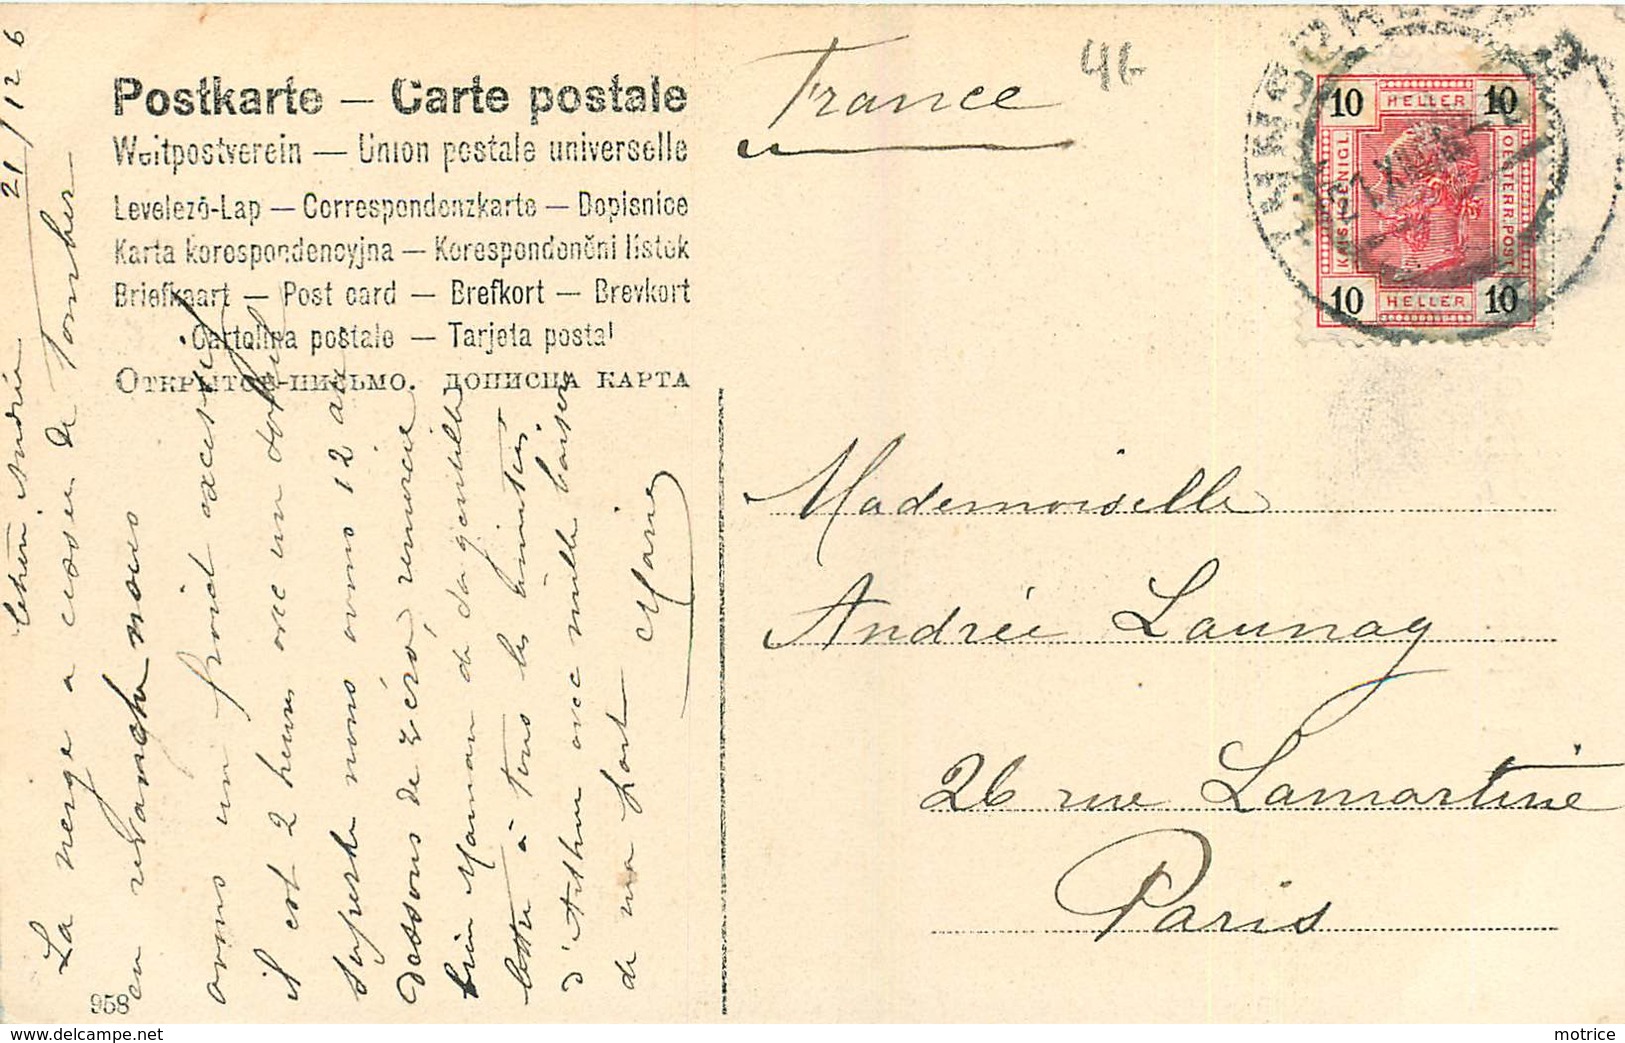 Postkarte — Carte postale
Weltpostverein — Union postale universelle
Levelező-Lap — Correspondenzkarte — Dopisnice
Karta korespondencyjna — Korespondenční lístek
Briefkaart — Post card — Brefkort — Brevkort
Cartolina postale — Tarjeta postal
Открытое-письмо. дописна карта
France
44
10 HELLER 10
KAIS. KÖNIGL.
OESTERR. POST
10 HELLER 10
INNSBRUCK
21 XII
21/12 6
Chère Andrée
La neige a cessé de tomber
en revanche nous
avons un froid excessif
il est 2 heures avec un soleil
superbe nous avons 12 au
dessous de zéro, remercie
bien Maman de sa gentille
lettre à tous les amitiés
d'Arthur avec mille baisers
de ma part
Marie
Mademoiselle
Andrée Launay
26 rue Lamartine
Paris
958
motrice